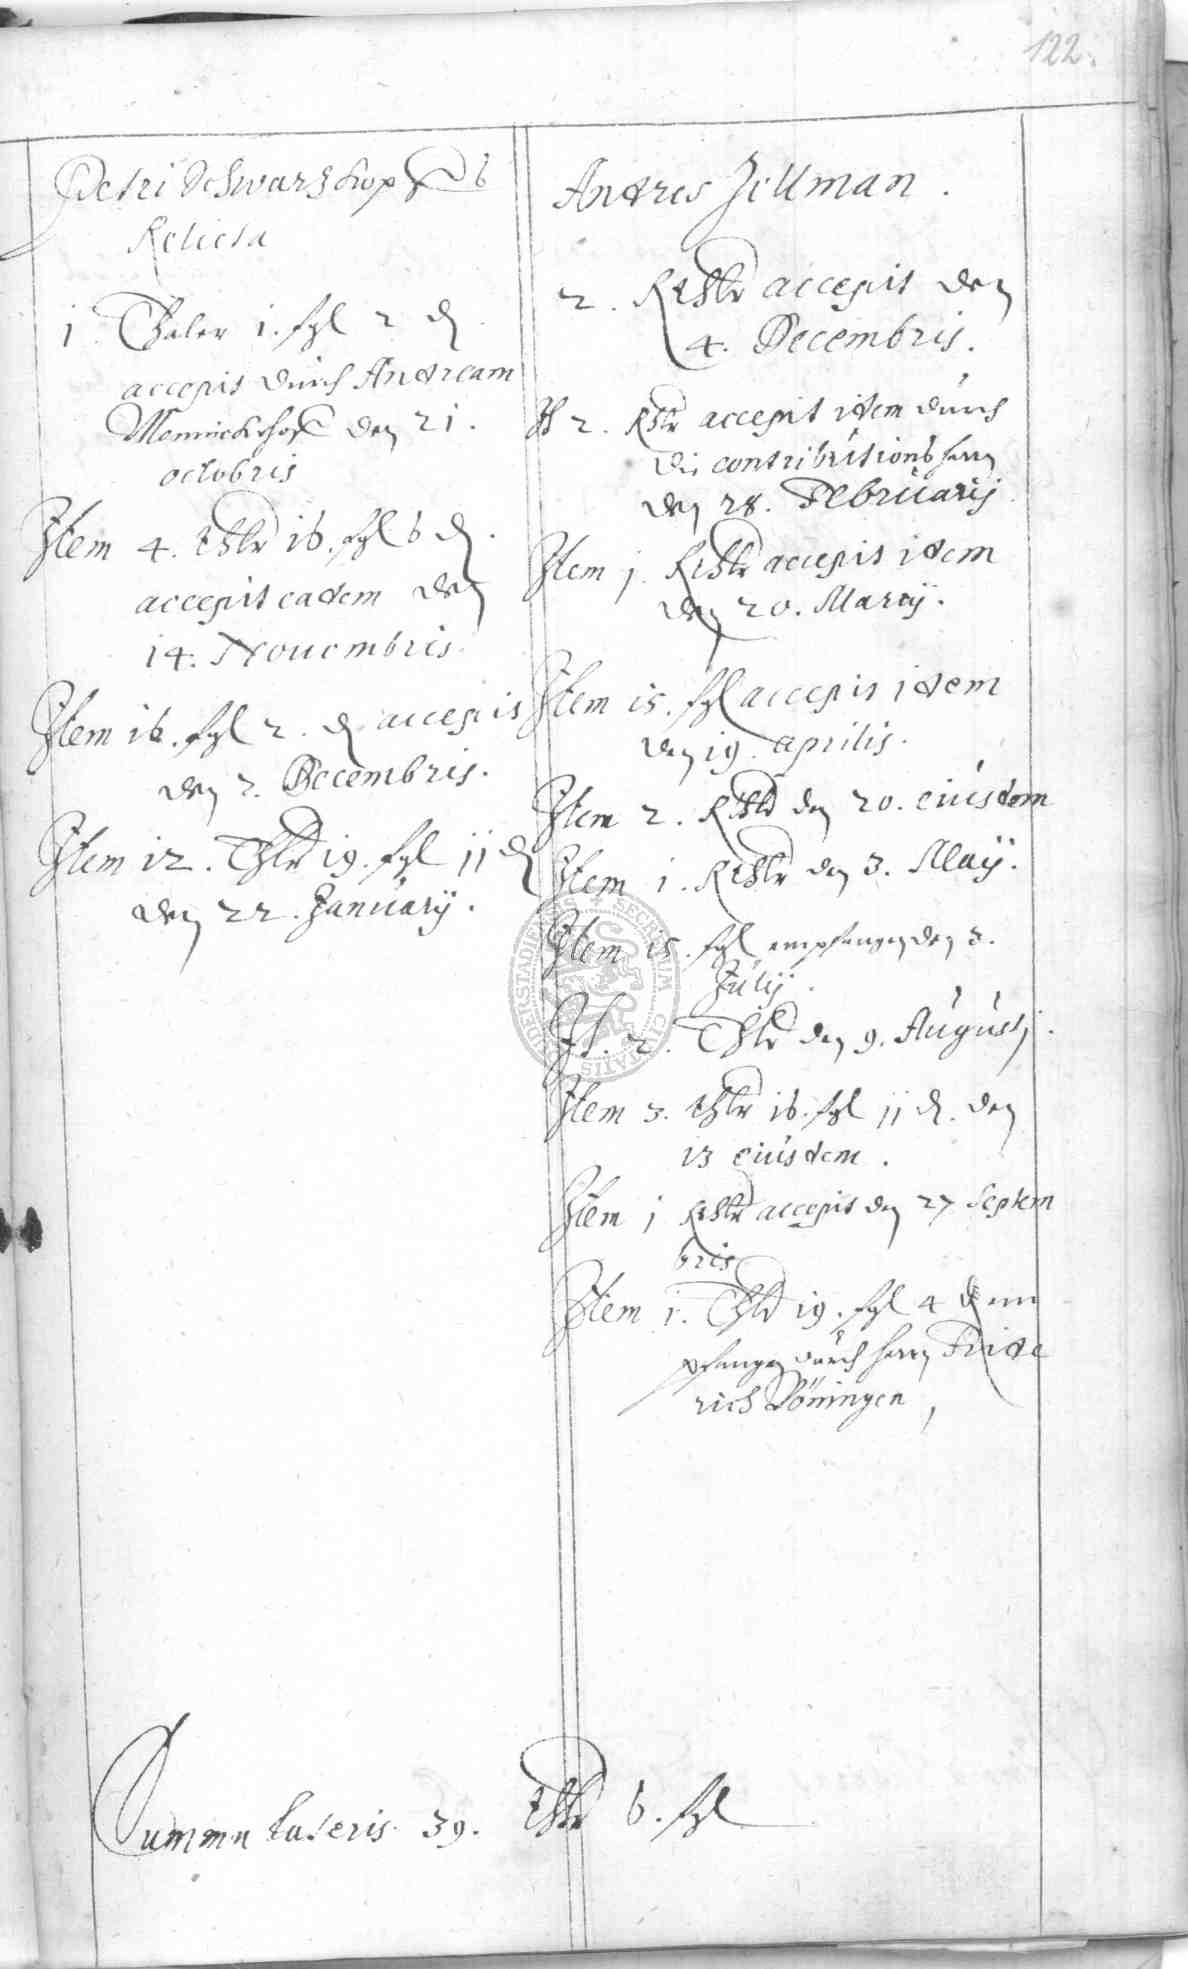 122.
Petri Schwarzkopffs
Relicta
1 Thaler 1. fgl 2 d
accepit durch Andream
Monnickehoff den 21.
octobris
Item 4. Thlr 16. fgl 6 d.
accepit eadem den
14. Nouembris
Item 16. fgl 2. d accepit
den 2. Decembris.
Item 12. Thlr 19. fgl 11 d
den 22. January.
Andres Jillman.
2. Rthlr accepit den
4. Decembris.
It 2. Rthlr accepit idem durch
die contributionsherrn
den 28. Februarij
Item 1. Rthlr accepit idem
den 20. Martij.
Item 15. fgl accepit idem
den 19. Aprilis.
Item 2. Rthlr den 20. eiusdem
Item 1. Rthlr den 3. Maij.
Item 15. fgl empfangen den 3.
Julij.
It. 2. Thlr den 9. Augustj.
Item 3. Thlr 16. fgl 11 d. den
13 eiusdem.
Item 1 Rthlr accepit den 27 Septem
bris
Item 1. Thlr 19. fgl 4 d em
pfangen durch herrn Fride
rich Böningen
Summa lateris 39. Thlr 6. fgl
SECRETUM CIVITATIS DUDERSTADIENSIS